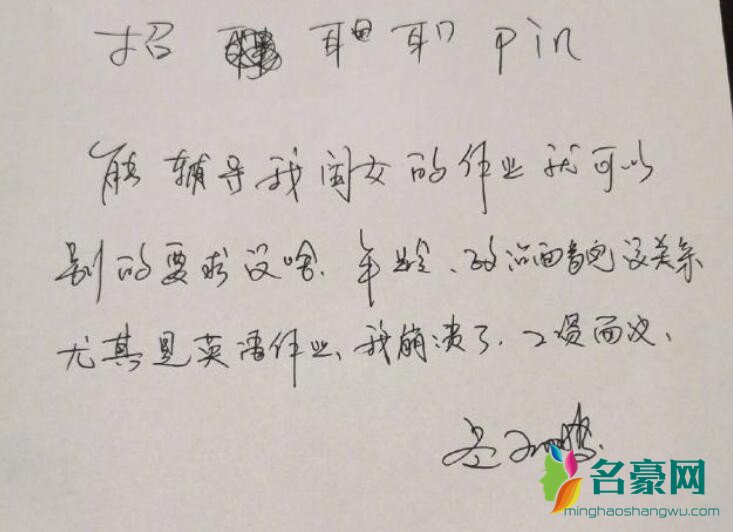 招 pin
能辅导我闺女的作业就可以
别的要求没啥.年龄、政治面貌没关系
尤其是英语作业、我崩溃了.工资面议.
名豪网
minghaoshangwu.com